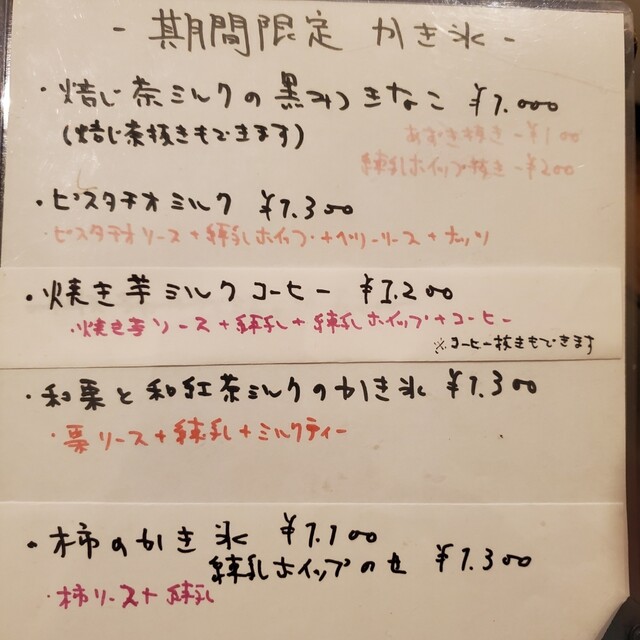 - 期間限定 かき氷 -
・焙じ茶ミルクの黒みつきなこ ¥1.000
(焙じ茶抜きもできます)
あずき抜き -¥100
練乳ホイップ抜き -¥200
・ピスタチオミルク ¥1.300
・ピスタチオソース+練乳ホイップ+ベリーソース+ナッツ
・焼き芋ミルクコーヒー ¥1.200
・焼き芋ソース+練乳+練乳ホイップ+コーヒー
※コーヒー抜きもできます
・和栗と和紅茶ミルクのかき氷 ¥1.300
・栗ソース+練乳+ミルクティー
・柿のかき氷 ¥1.100
練乳ホイップのせ ¥1.300
・柿ソース+練乳